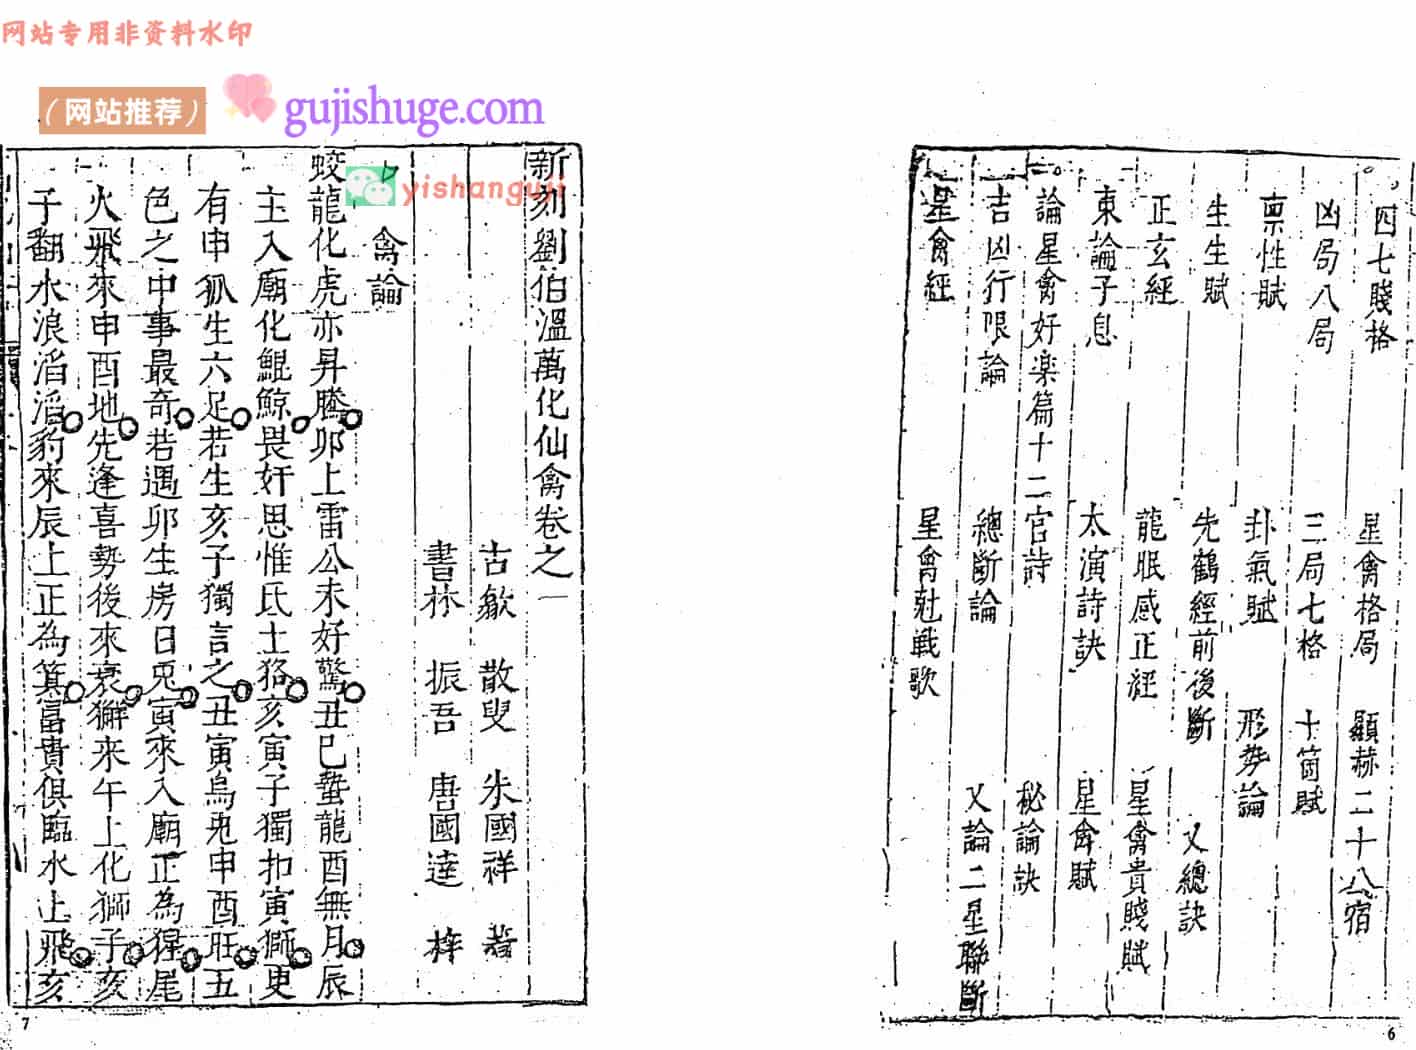 网站专用非资料水印
（网站推荐）
gujishuge.com
yishanguji
四七賤格 星禽格局 顯赫二十八宿
凶局八局 三局七格 十箇賦
稟性賦 卦氣賦 形势論
生生賦 先鶴經前後斷 又總訣
正玄經 龍眠感正經 星禽貴賤賦
東論子息 太演詩訣 星禽賦
論星禽好楽篇十二宮詩 秘論訣
吉凶行限論 總斷論 又論二星聯斷
星禽經 星禽尅戦歌
6
新刻劉伯溫萬化仙禽卷之一
古歙 散叟 朱國祥 著
書林 振吾 唐國達 梓
禽論
蛟龍化虎亦昇騰卯上雷公未好驚丑巳蟄龍酉無月辰
主入廟化鯤鯨畏奸思惟氐土狢亥寅子獨扣寅獅更
有申狐生六足若生亥子獨言之丑寅烏兎申酉旺五
色之中事最奇若遇卯生房日兎寅來入廟正為猩尾
火飛來申酉地先逢喜勢後來衰獬来午上化獅子亥
子翻水浪滔滔豹來辰上正為箕富貴俱臨水上飛亥
7